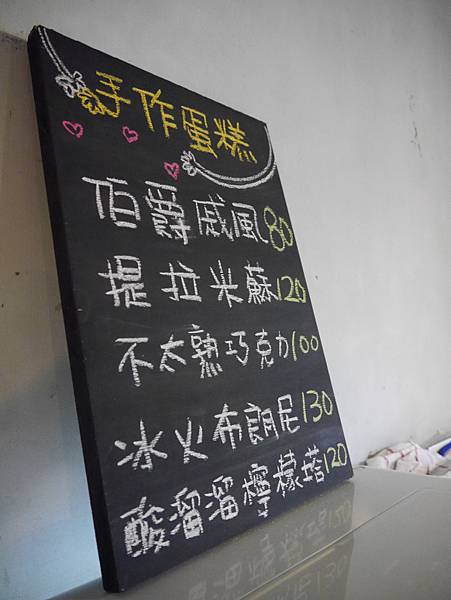 手作蛋糕
伯爵戚風80
提拉米蘇120
不太熟巧克力100
冰火布朗尼130
酸溜溜檸檬塔120